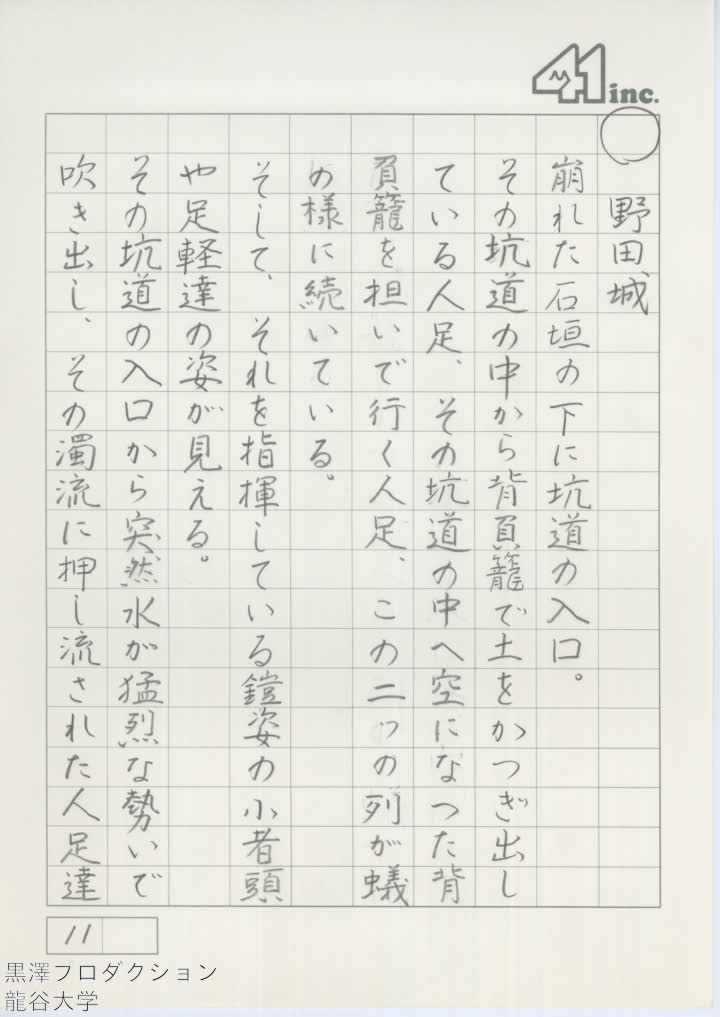 41 inc.
○ 野田城
崩れた石垣の下に坑道の入口。
その坑道の中から背負籠で土をかつぎ出し
ている人足、その坑道の中へ空になつた背
負籠を担いで行く人足、この二ツの列が蟻
の様に続いている。
そして、それを指揮している鎧姿の小者頭
や足軽達の姿が見える。
その坑道の入口から突然水が猛烈な勢いで
吹き出し、その濁流に押し流された人足達
11
黒澤プロダクション
龍谷大学